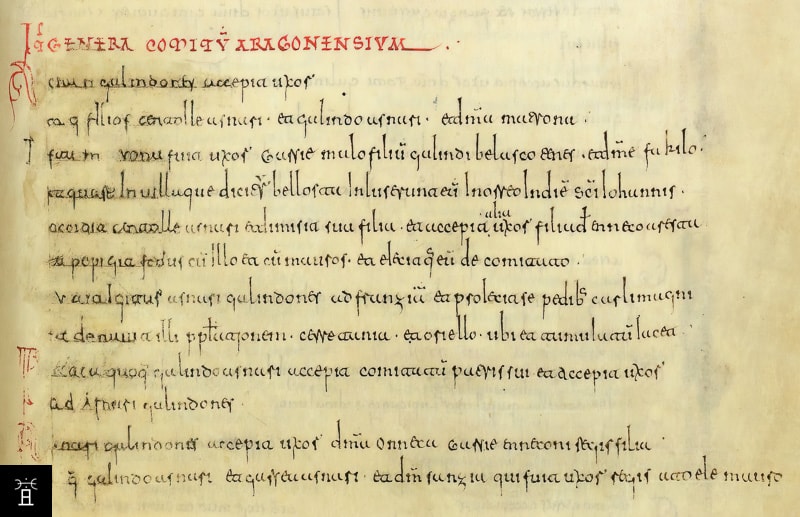 ITEM GENERA COMITŪ ARAGONENSIUM
Asnari galindones accepit uxor
et q filios centolle asnari. et galindo asnari. et dmā matrona.
fuit uxor Garsie malo filiū galindi belascotenes. et dmē fakilo.
In villa que dicitur bellosta Inluserunt eū In orreo In diē scī Iohannis.
occidit centolle asnari et dimisit sua filia. et accepit alia uxor filia dē enneco aresta
et pepigit fedus cū illo et cū mauros. et eiecit eū de comitato.
asnari galindones ad franziā et proiecit se pedibus carlimagni
et donavit illi populationem. cerretania. et oriello. ubi et tumulatū iacet
galindo asnari accepit comitatū patris sui et accepit uxor
galindones
Asnari galindones accepit uxor dmā Onneca Garsie enneconi regis filia
q galindo asnari et garsea asnari. et dm sanzia qui fuit uxor regis atoele mauro